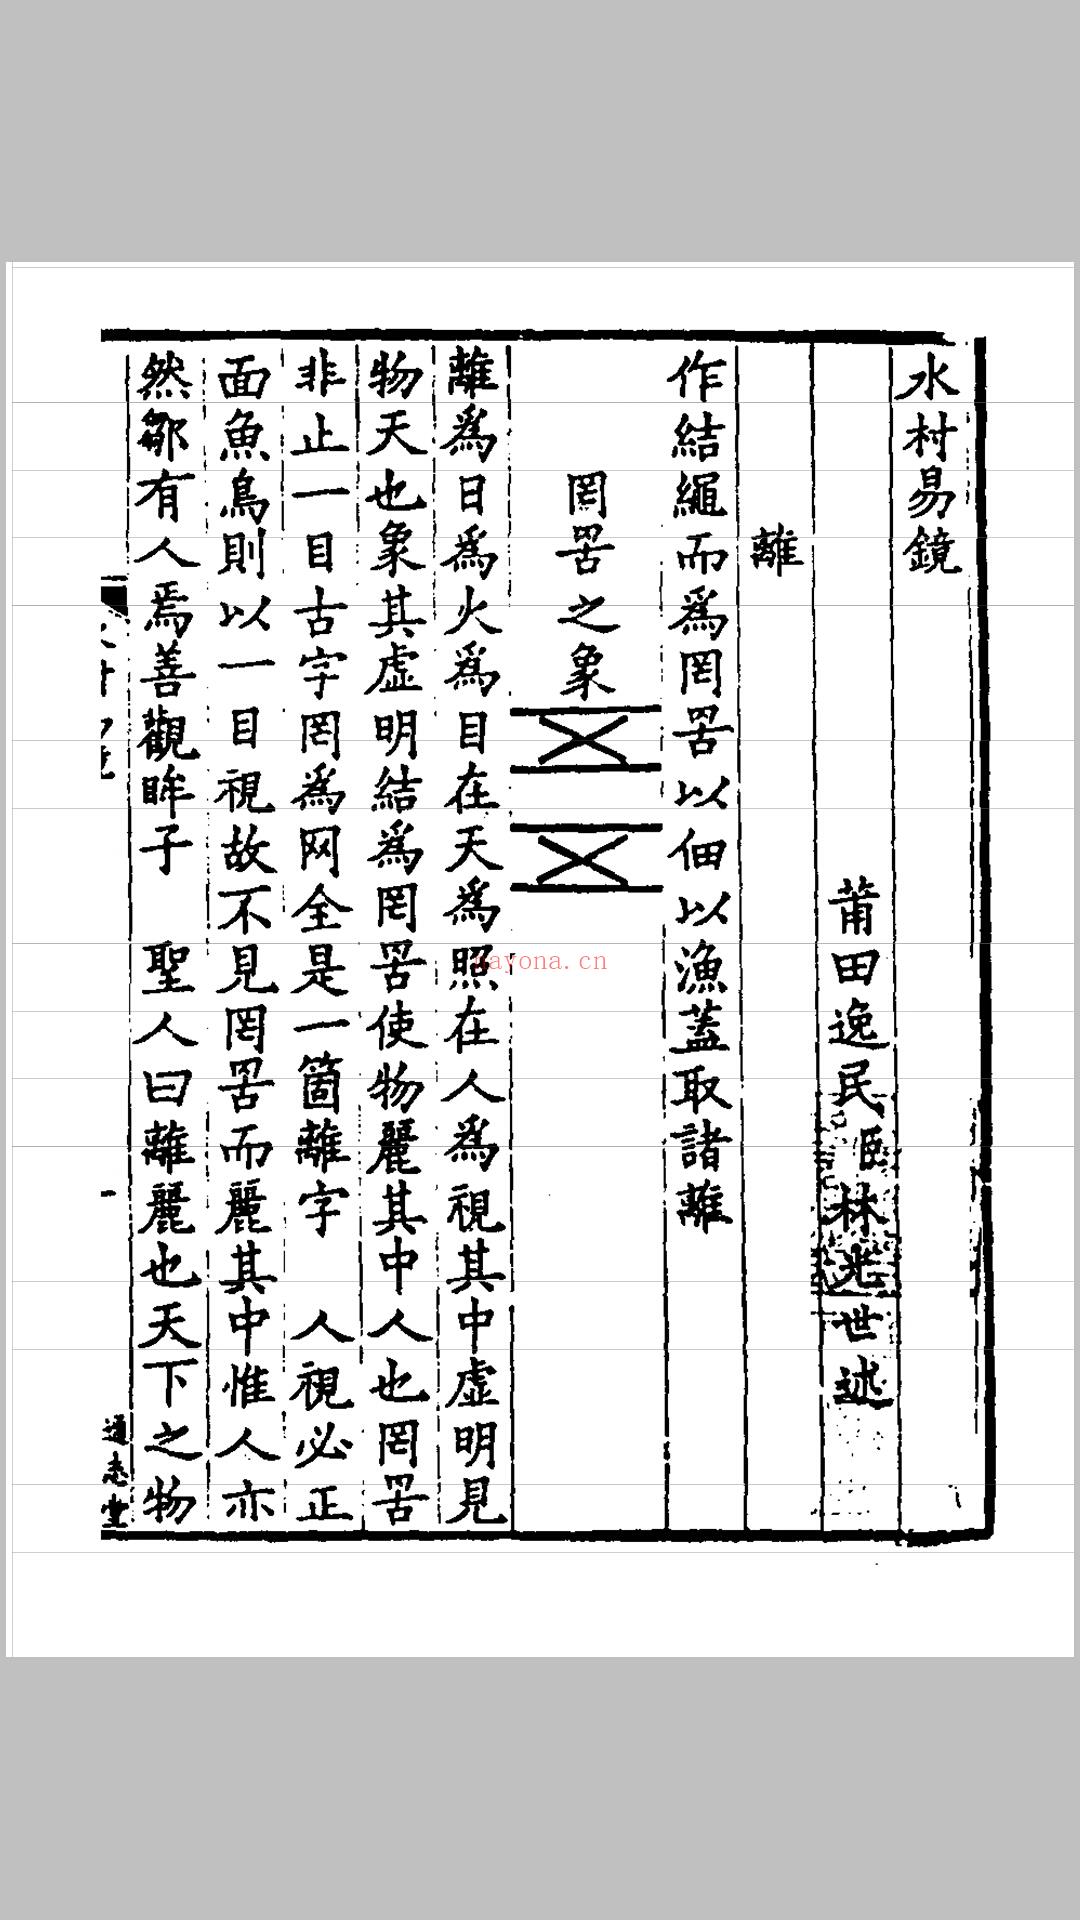 水村易鏡
莆田逸民臣林光世述
離
作結繩而爲罔罟以佃以漁蓋取諸離
罔罟之象
離爲日爲火爲目在天爲照在人爲視其中虛明見
物天也象其虛明結爲罔罟使物麗其中人也罔罟
非止一目古字罔爲网全是一箇離字 人視必正
面魚鳥則以一目視故不見罔罟而麗其中惟人亦
然鄒有人焉善觀眸子 聖人曰離麗也天下之物
一
通志堂